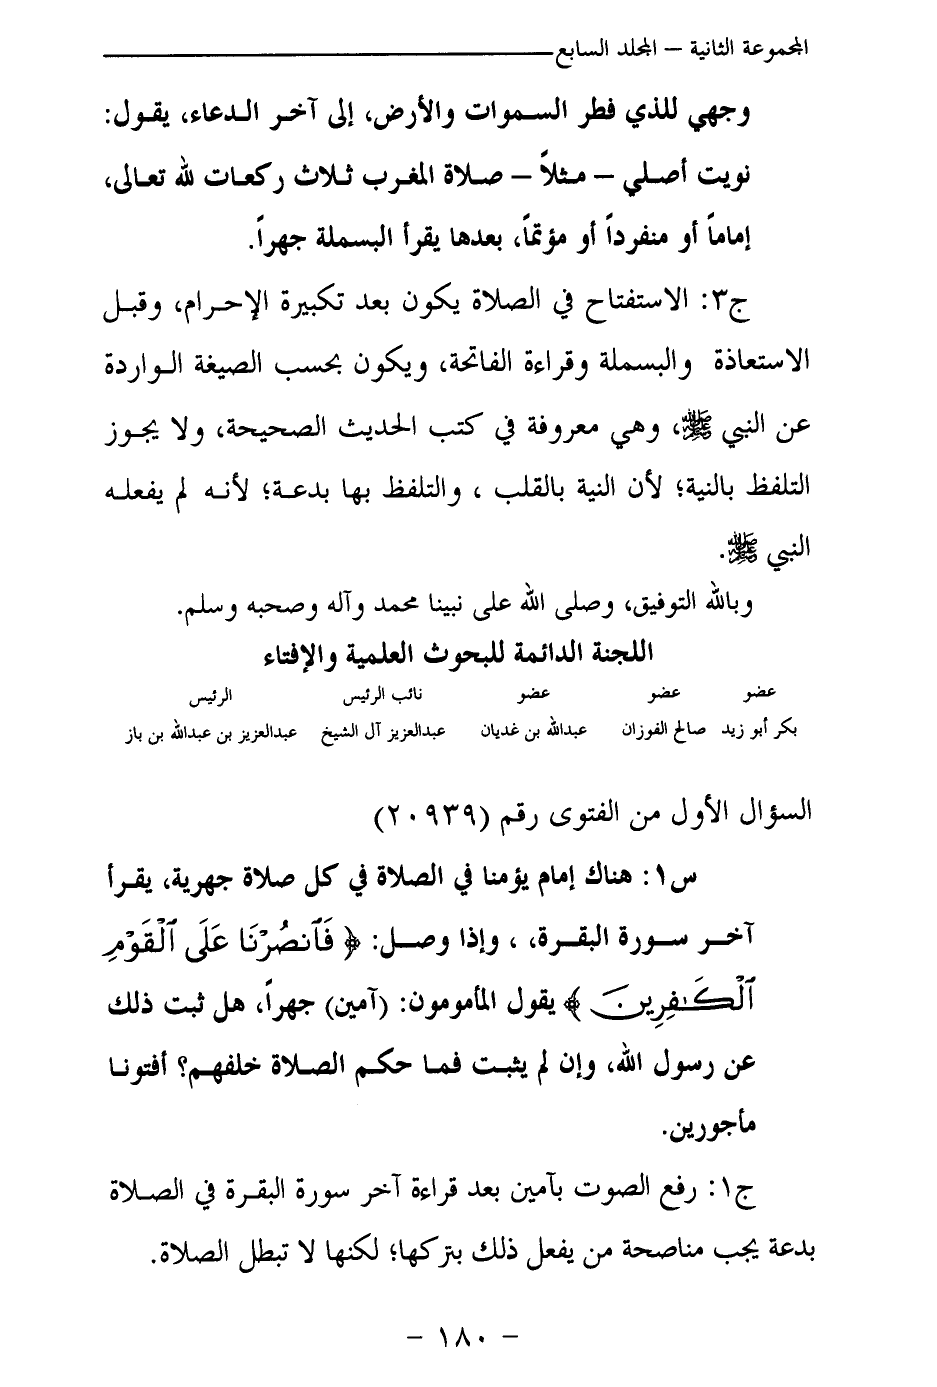 المجموعة الثانية – المجلد السابع
وجهي للذي فطر السموات والأرض، إلى آخر الدعاء، يقول:
نويت أصلي – مثلاً – صلاة المغرب ثلاث ركعات لله تعالى،
إماماً أو منفرداً أو مؤتماً، بعدها يقرأ البسملة جهراً.
ج٣: الاستفتاح في الصلاة يكون بعد تكبيرة الإحرام، وقبل
الاستعاذة والبسملة وقراءة الفاتحة، ويكون بحسب الصيغة الواردة
عن النبي ﷺ، وهي معروفة في كتب الحديث الصحيحة، ولا يجوز
التلفظ بالنية؛ لأن النية بالقلب ، والتلفظ بها بدعة؛ لأنه لم يفعله
النبي ﷺ.
وبالله التوفيق، وصلى الله على نبينا محمد وآله وصحبه وسلم.
اللجنة الدائمة للبحوث العلمية والإفتاء
عضو عضو عضو نائب الرئيس الرئيس
بكر أبو زيد صالح الفوزان عبدالله بن غديان عبدالعزيز آل الشيخ عبدالعزيز بن عبدالله بن باز
السؤال الأول من الفتوى رقم (٢٠٩٣٩)
س١: هناك إمام يؤمنا في الصلاة في كل صلاة جهرية، يقرأ
آخر سورة البقرة، ، وإذا وصل: ﴿ فَٱنصُرْنَا عَلَى ٱلْقَوْمِ
ٱلْكَـٰفِرِينَ ﴾ يقول المأمومون: (آمين) جهراً، هل ثبت ذلك
عن رسول الله، وإن لم يثبت فما حكم الصلاة خلفهم؟ أفتونا
مأجورين.
ج١: رفع الصوت بآمين بعد قراءة آخر سورة البقرة في الصلاة
بدعة يجب مناصحة من يفعل ذلك بتركها؛ لكنها لا تبطل الصلاة.
– ١٨٠ –